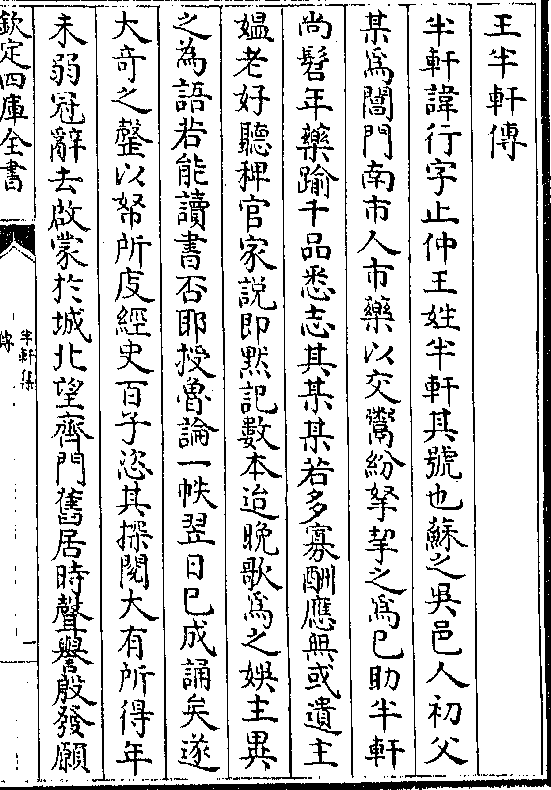 王半軒傳
半軒諱行字止仲王姓半軒其號也蘇之吳邑人初父
某爲閶門南市人市藥以交鬻紛拏挈之爲己助半軒
尚髫年藥踰千品悉志其某某若多寡酬應無或遺主
媼老好聽稗官家説即黙記數本迨晚歌爲之娛主異
之為語若能讀書否耶授魯論一帙翌日已成誦矣遂
大奇之罄以帑所庋經史百子恣其探閱大有所得年
未弱冠辭去啟蒙於城北望齊門舊居時聲譽殷發願
欽定四庫全書
半軒集
傳
一